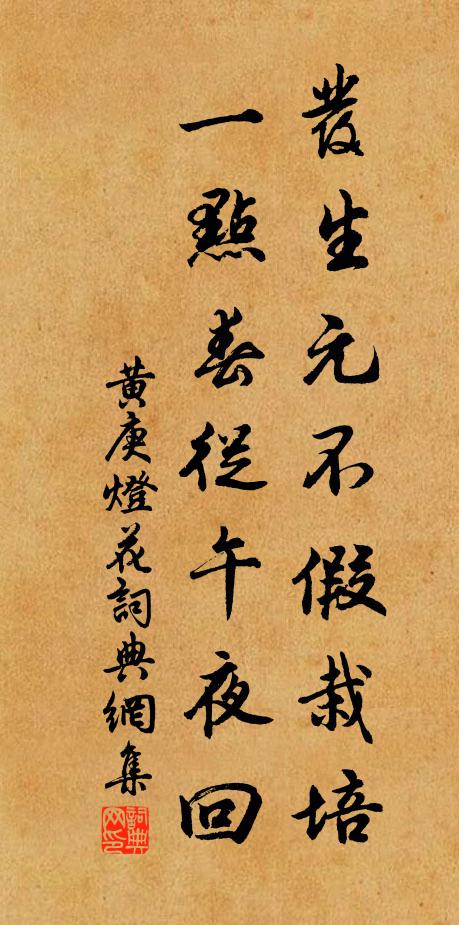 發生元不假栽培
一點春從午夜回
黃庚燈花詞典網集
詞典網印